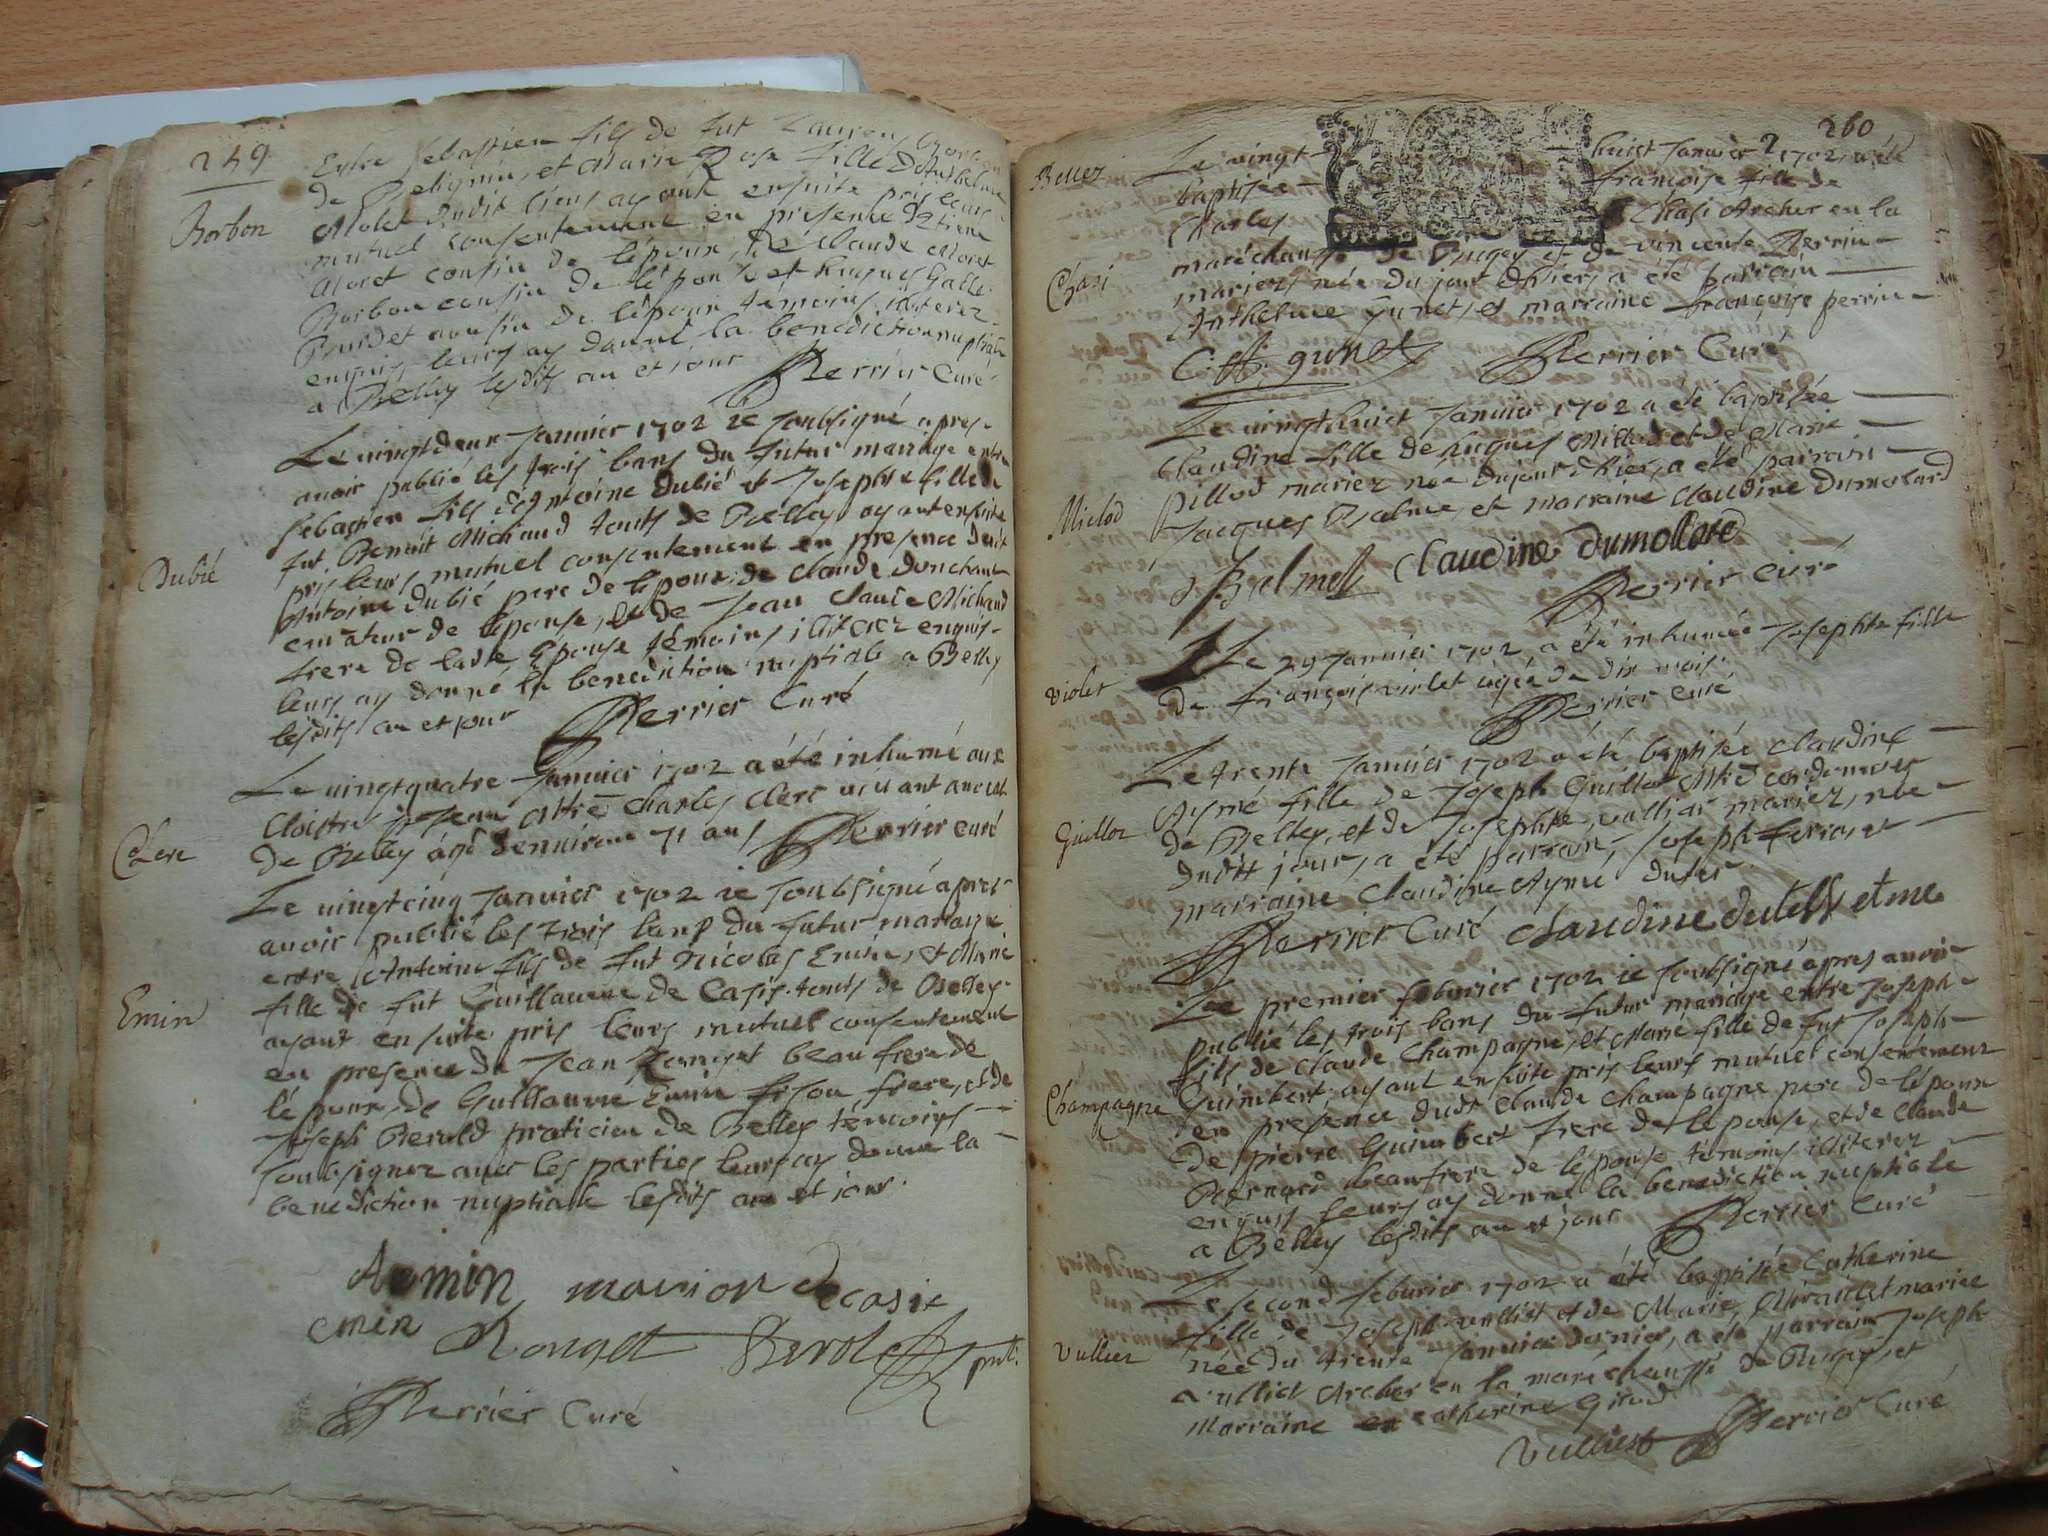 249
Entre Sebastien fils de fut Laurens Borbon
de Peligniu, et Marie Rose fille d'Anthelme
Molet dudit lieu, ayant ensuite pris leurs
Borbon
mutuel consentement en présence d'Etiene
Moret cousin de l'époux, de Claude Moret
Borbon cousin de l'époux et huques Galle
cousin de l'époux témoins illiterez
enquis, leurs ay donné la benediction nuptiale
a Belley lesdits an et jour Perrier Curé
Le vingtdeux Janvier 1702 ie soubsigné apres
avoir publié les trois bans du futur mariage entre
Sebastien fils d'Antoine Dubié et Josephte fille de
fut Benoit Michaud touts de Belley ayant ensuite
pris leurs mutuel consentement en presence dudit
Dubié
Antoine Dubié pere de lepoux, de Claude Donchant
curateur de lepouse, et de Jean Claude Michaud
frere de ladte Epouse témoins illiterez enquis
leurs ay donné la benediction nuptiale a Belley
lesdits an et jour Perrier Curé
Le vingtquatre Janvier 1702 a été inhumé aux
Cloistre Mtre Charles Clerc vivant avocat
Clerc
de Belley agé denviron 71 ans Perrier curé
Le vingtcinq Janvier 1702 ie soubsigné apres
avoir publié les trois bans du futur mariage
entre Antoine fils de fut Nicolas Emin, et Marie
Emin
fille de fut Guillaume de Casis touts de Belley
ayant ensuite pris leurs mutuel consentement
en presence de Jean Rouget beau frere de
lépoux, de Guillaume Emin son frere, et de
Joseph Berold praticien de Belley témoins
soubsignez avec les parties leurs ay donné la
benediction nuptiale lesdits an et jour.
A emin marion de casix
emin Rouget Berold
Perrier Curé
260
Le vingt huict Janvier 1702 a été
baptisée françoise fille de
Charles Chasi Archer en la
maréchaussé de Bugey et de vincente Perrin
Chasi
mariez née du jour d'hier, a été parrain
Anthelme Gunet, et marraine françoise perrin
gunet Perrier Curé
Le vingthuict Janvier 1702 a été baptisée
Claudine fille de huques Millod et de Marie
Millod
Pillod mariez née du jour d'hier, a été parrain
Jacques Balme, et marraine Claudine Dumolard
J Balme Claudine dumollard
Perrier curé
Le 29 Janvier 1702 a été inhumée Josephte fille
violet
de François violet agée de dix mois.
Perrier curé
Le trente Janvier 1702 a été baptisée Claudine
Aymé fille de Joseph Guillot Mtre cordonnier
Guillot
de Belley, et de Josephte vulliod mariez, née
dudit jour, a été parrain, Joseph ferrand
marraine Claudine Aymé
Perrier Curé Claudine
Le premier feburier 1702 ie soubsigné apres avoir
publié les trois bans du futur mariage entre Joseph
fils de Claude Champagne, et Marie fille de fut Joseph
Guimbert ayant ensuite pris leurs mutuel consentement
Champagne
en presence dudt Claude Champagne pere de lépoux
de pierre Guimbert frere de lepouse, et de Claude
Bernard beaufrere de lepouse témoins illiterez
enquis leurs ay donné la benediction nuptiale
a Belley lesdits an et jour Perrier Curé
Le second feburier 1702 a été baptisée Catherine
fille de Joseph vulliet et de Marie mariez
Vullier
née du trente Janvier dernier, a été parrain Joseph
vulliet Archer en la maréchaussé de Bugey, et
Marraine Catherine Girod
Vulliest Perrier Curé